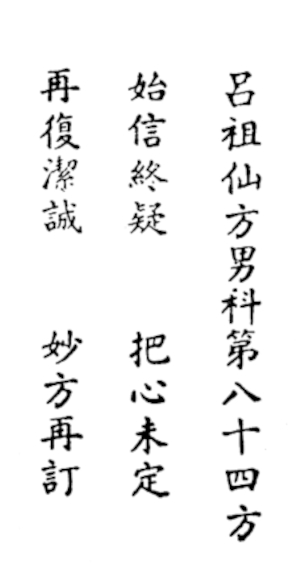 呂祖仙方男科第八十四方
始信終疑　把心未定
再復潔誠　妙方再訂